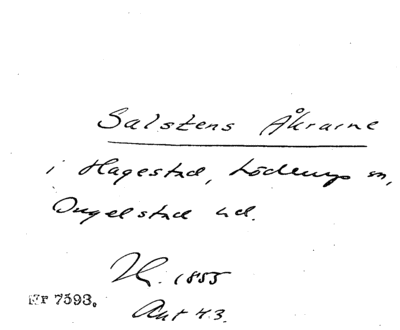 Salstens Åkrarne
i Hagestad, Löderups sn,
Ingelstad hd.
1855
Nr 7593.
Akt 43.